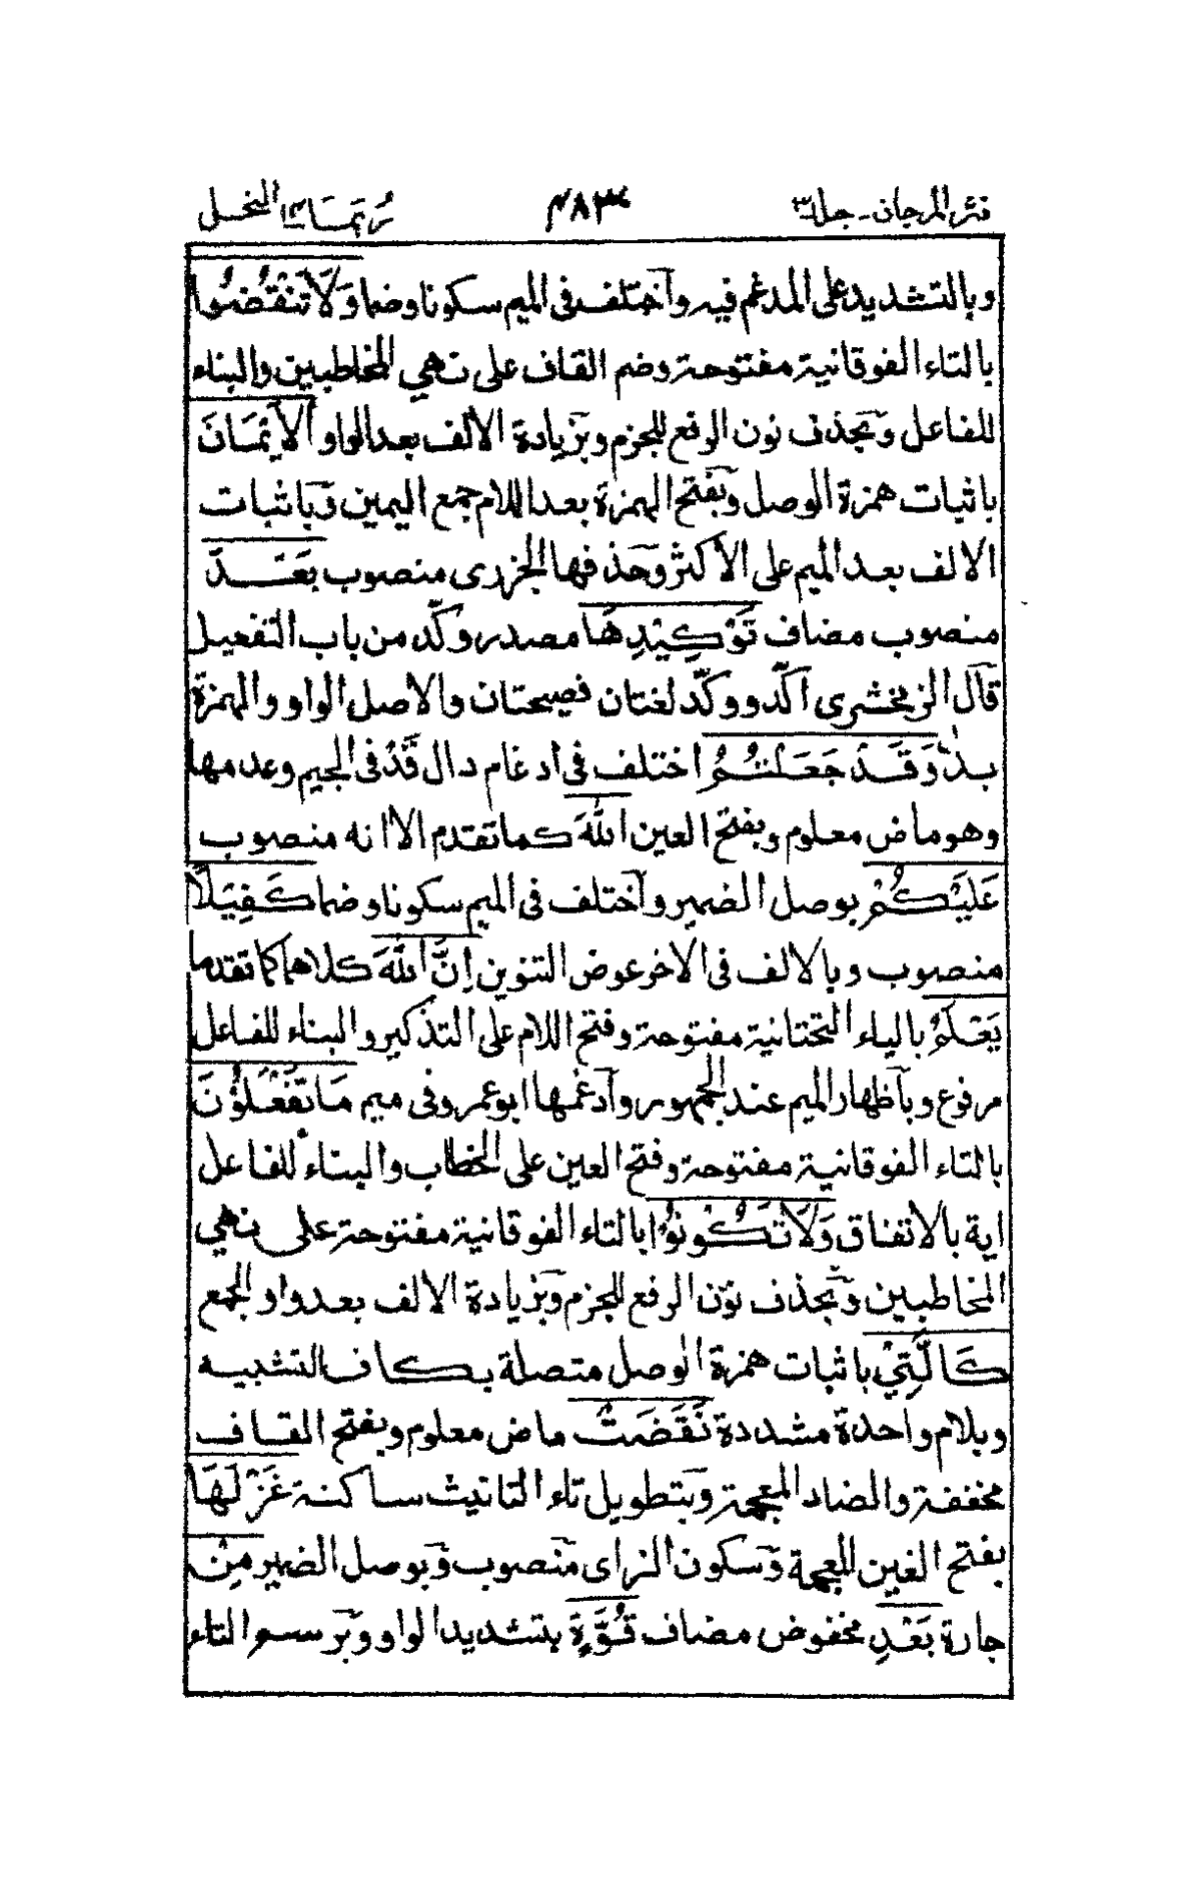 نثر المرجان ـ جلد ٣
٤٨٣
ربما ١٤ النحل
وبالتشديد على المدغم فيه وآختلف فى الميم سكونا وضما وَلَا تَنْقُضُوا
بالتاء الفوقانية مفتوحة وضم القاف على نهي المخاطبين والبناء
للفاعل وبحذف نون الرفع للجزم وبزيادة الالف بعد الواو الْأَيْمَانَ
باثبات همزة الوصل وبفتح الهمزة بعد اللام جمع اليمين وباثبات
الالف بعد الميم على الأكثر وحذفها الجزرى منصوب بَعْدَ
منصوب مضاف تَوْكِيْدِهَا مصدر وكّد من باب التفعيل
قال الزمخشرى اكّد ووكّد لغتان فصيحتان والاصل الواو والهمزة
بدل وَقَدْ جَعَلْتُمُ اختلف فى ادغام دال قَدْ فى الجيم وعدمها
وهو ماض معلوم وبفتح العين اللّٰهَ كما تقدم الا انه منصوب
عَلَيْكُمْ بوصل الضمير وآختلف فى الميم سكونا وضما كَفِيْلًا
منصوب وبالالف فى الاخر عوض التنوين اِنَّ اللّٰهَ كلاهما كما تقدما
يَعْلَمُ بالياء التحتانية مفتوحة وفتح اللام على التذكير والبناء للفاعل
مرفوع وبآظهار الميم عند الجمهور وآدغمها ابو عمرو فى ميم مَا تَفْعَلُوْنَ
بالتاء الفوقانية مفتوحة وفتح العين على الخطاب والبناء للفاعل
اية بالاتفاق وَلَا تَكُوْنُوْا بالتاء الفوقانية مفتوحة على نهي
المخاطبين وبحذف نون الرفع للجزم وبزيادة الالف بعد واو الجمع
كَالَّتِيْ باثبات همزة الوصل متصلة بكاف التشبيه
وبلام واحدة مشددة نَقَضَتْ ماض معلوم وبفتح القاف
مخففة والضاد المعجمة وبتطويل تاء التانيث ساكنة غَزْلَهَا
بفتح الغين المعجمة وسكون الزاى منصوب وبوصل الضمير مِنْ
جارة بَعْدِ مخفوض مضاف قُوَّةٍ بتشديد الواو وبرسم التاء